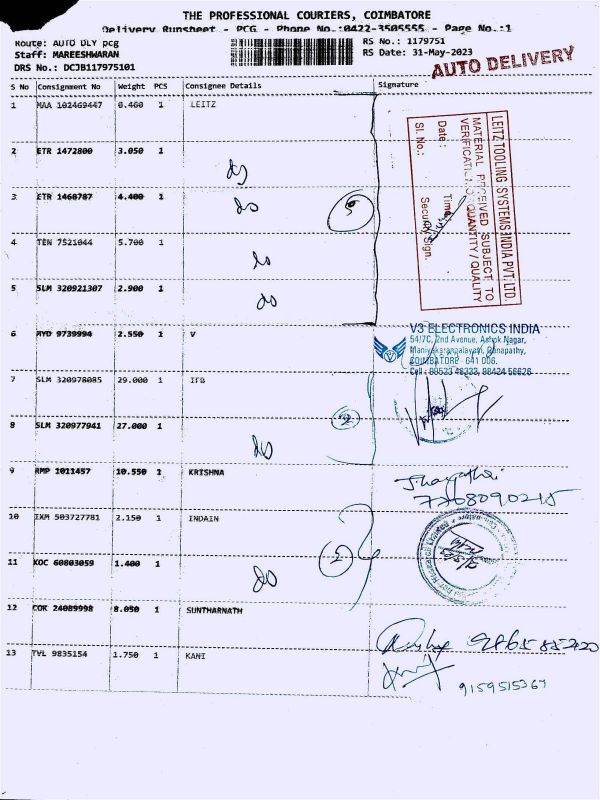 THE PROFESSIONAL COURIERS, COIMBATORE
Delivery Runsheet - PCG - Phone No.:0422-3505555 - Page No.:1
Route: AUTO DLY pcg
RS No.: 1179751
Staff: MAREESHWARAN
RS Date: 31-May-2023
DRS No.: DCJB117975101
AUTO DELIVERY
S No Consignment No Weight PCS Consignee Details Signature
1 MAA 102469447 0.460 1 LEITZ
2 ETR 1472800 3.050 1
do
3 ETR 1468787 4.400 1
do
5
4 TEN 7521044 5.700 1
do
5 SLM 320921307 2.900 1
do
LEITZ TOOLING SYSTEMS INDIA PVT. LTD.
MATERIAL RECEIVED SUBJECT TO
VERIFICATION OF QUANTITY / QUALITY
Date : Time
Sl. No.: Security Sign.
6 MYD 9739994 2.550 1 V
V3 ELECTRONICS INDIA
54/7C, 2nd Avenue, Ashok Nagar,
Maniyakarangalayam, Ganapathy,
COIMBATORE - 641 006.
Cell : 99533 48333, 98424 56626
7 SLM 320978085 29.000 1 ITB
8 SLM 320977941 27.000 1
2
do
9 RMP 1011457 10.550 1 KRISHNA
7708090215
10 IXM 503727781 2.150 1 INDAIN
11 KOC 60803059 1.400 1
2
do
12 COK 24089998 8.050 1 SUNTHARNATH
13 TVL 9835154 1.750 1 KANI
9159515367